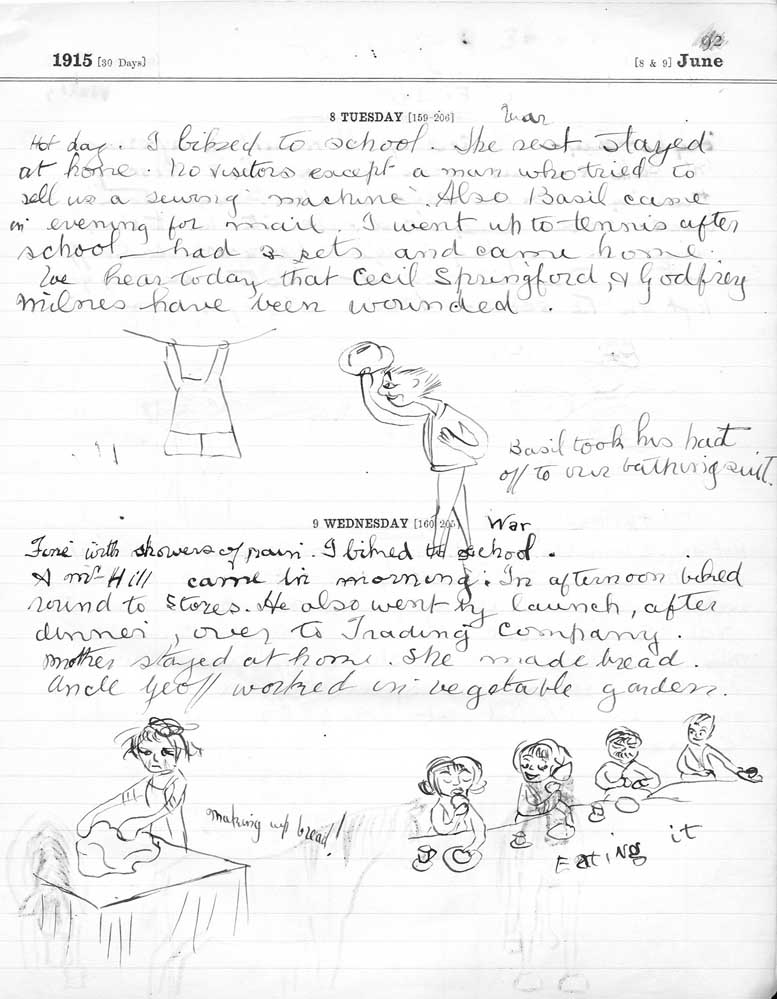 92
1915 [30 Days] [8 & 9] June
8 TUESDAY [159-206] War
Hot day. I biked to school. The rest stayed
at home. No visitors except a man who tried to
sell us a sewing machine. Also Basil came
in evening for mail. I went up to tennis after
school — had 3 sets and came home.
We hear today that Cecil Springford, & Godfrey
Milnes have been wounded.
Basil took his hat
off to our bathing suit.
9 WEDNESDAY [160-205] War
Fine with showers of rain. I biked to school.
A Mr Hill came in morning. In afternoon biked
round to Stores. He also went by launch, after
dinner, over to Trading Company.
Mother stayed at home. She made bread.
Uncle Geoff worked in vegetable garden.
making up bread!
Eating it